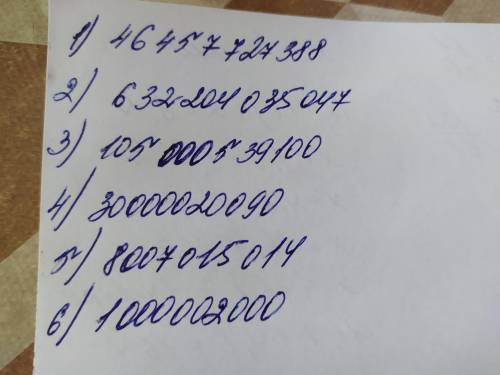 1) 46 457 727 388
2) 632 204 035 047
3) 105 000 539 100
4) 30000020090
5) 8007 015 014
6) 1000002000